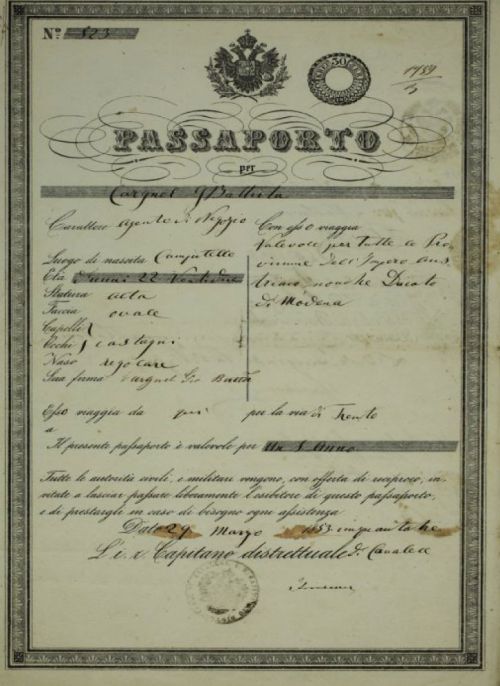 Nº 823
30
1789
PASSAPORTO
per
Carattere Agente di Negozio
Con esso viaggia
Valevole per tutte le Pro
vincie dell'Impero Aus
triaco, nonche Ducato
di Modena
Luogo di nascita
Età D'anni 22 Ventidue
Statura alta
Faccia ovale
Capelli }
Occhi } castagni
Naso regolare
Sua firma
Esso viaggia da qui per la via di Trento
a
Il presente passaporto è valevole per Un 1 Anno
Tutte le autorità civili, e militari vengono, con offerta di reciproco, in-
vitate a lasciar passare liberamente l'esibitore di questo passaporto,
e di prestargli in caso di bisogno ogni assistenza.
Dato 29 Marzo 1853
L'i. r. Capitano distrettuale di Cavalese